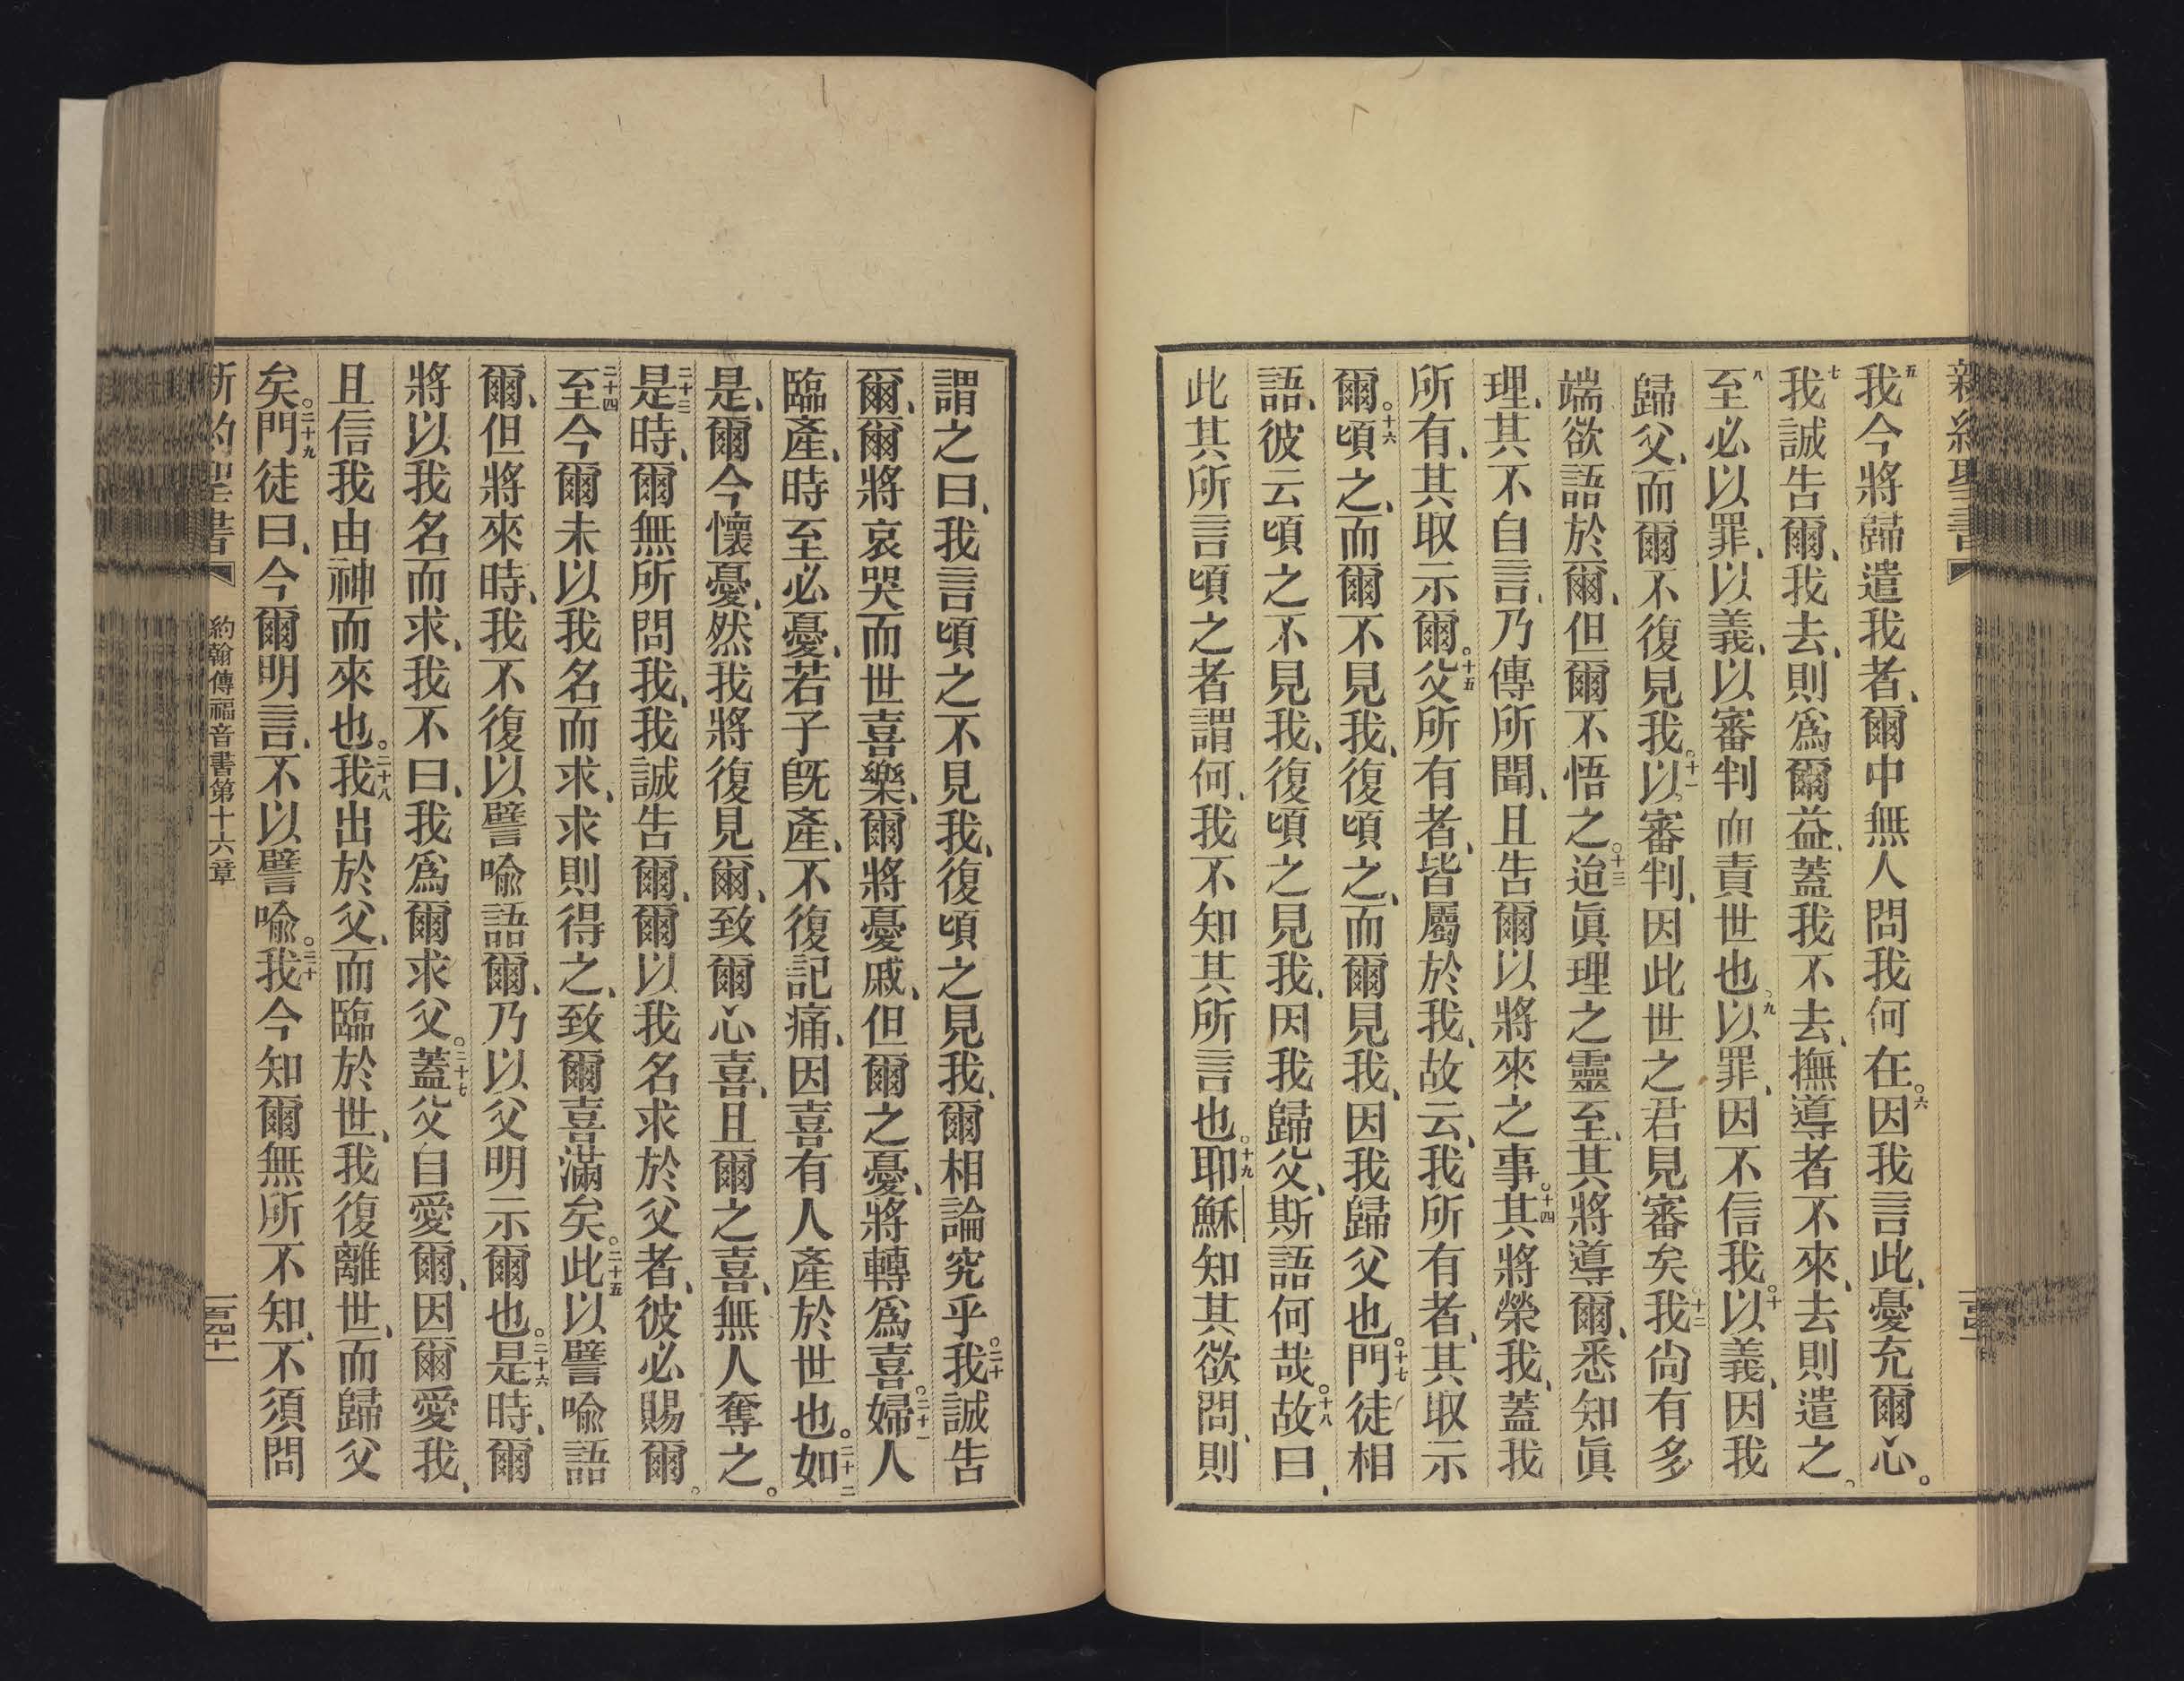 新約聖書
五我今將歸遣我者、爾中無人問我何在。六因我言此、憂充爾心。
七我誠告爾、我去、則爲爾益、蓋我不去、撫導者不來、去則遣之。
八至必以罪、以義、以審判而責世也、九以罪、因不信我。十以義、因我
歸父、而爾不復見我。十一以審判、因此世之君見審矣。十二我尙有多
端欲語於爾、但爾不悟之。十三迨眞理之靈至、其將導爾、悉知眞
理、其不自言、乃傳所聞、且告爾以將來之事。十四其將榮我、蓋我
所有、其取示爾。十五父所有者、皆屬於我、故云、我所有者、其取示
爾。十六頃之、而爾不見我、復頃之、而爾見我、因我歸父也。十七門徒相
語、彼云頃之不見我、復頃之見我、因我歸父、斯語何哉。十八故曰、
此其所言頃之者謂何、我不知其所言也。十九耶穌知其欲問、則
謂之曰、我言頃之不見我、復頃之見我、爾相論究乎。二十我誠告
爾、爾將哀哭而世喜樂、爾將憂戚、但爾之憂、將轉爲喜。二十一婦人
臨產、時至必憂、若子旣產、不復記痛、因喜有人產於世也。二十二如
是、爾今懷憂、然我將復見爾、致爾心喜、且爾之喜、無人奪之。
二十三是時、爾無所問我、我誠告爾、爾以我名求於父者、彼必賜爾。
二十四至今爾未以我名而求、求則得之、致爾喜滿矣。二十五此以譬喻語
爾、但將來時、我不復以譬喻語爾、乃以父明示爾也。二十六是時、爾
將以我名而求、我不曰、我爲爾求父。二十七蓋父自愛爾、因爾愛我、
且信我由神而來也。二十八我出於父、而臨於世、我復離世、而歸父
矣。二十九門徒曰、今爾明言、不以譬喻。三十我今知爾無所不知、不須問
新約聖書 約翰傳福音書第十六章 一百四十一